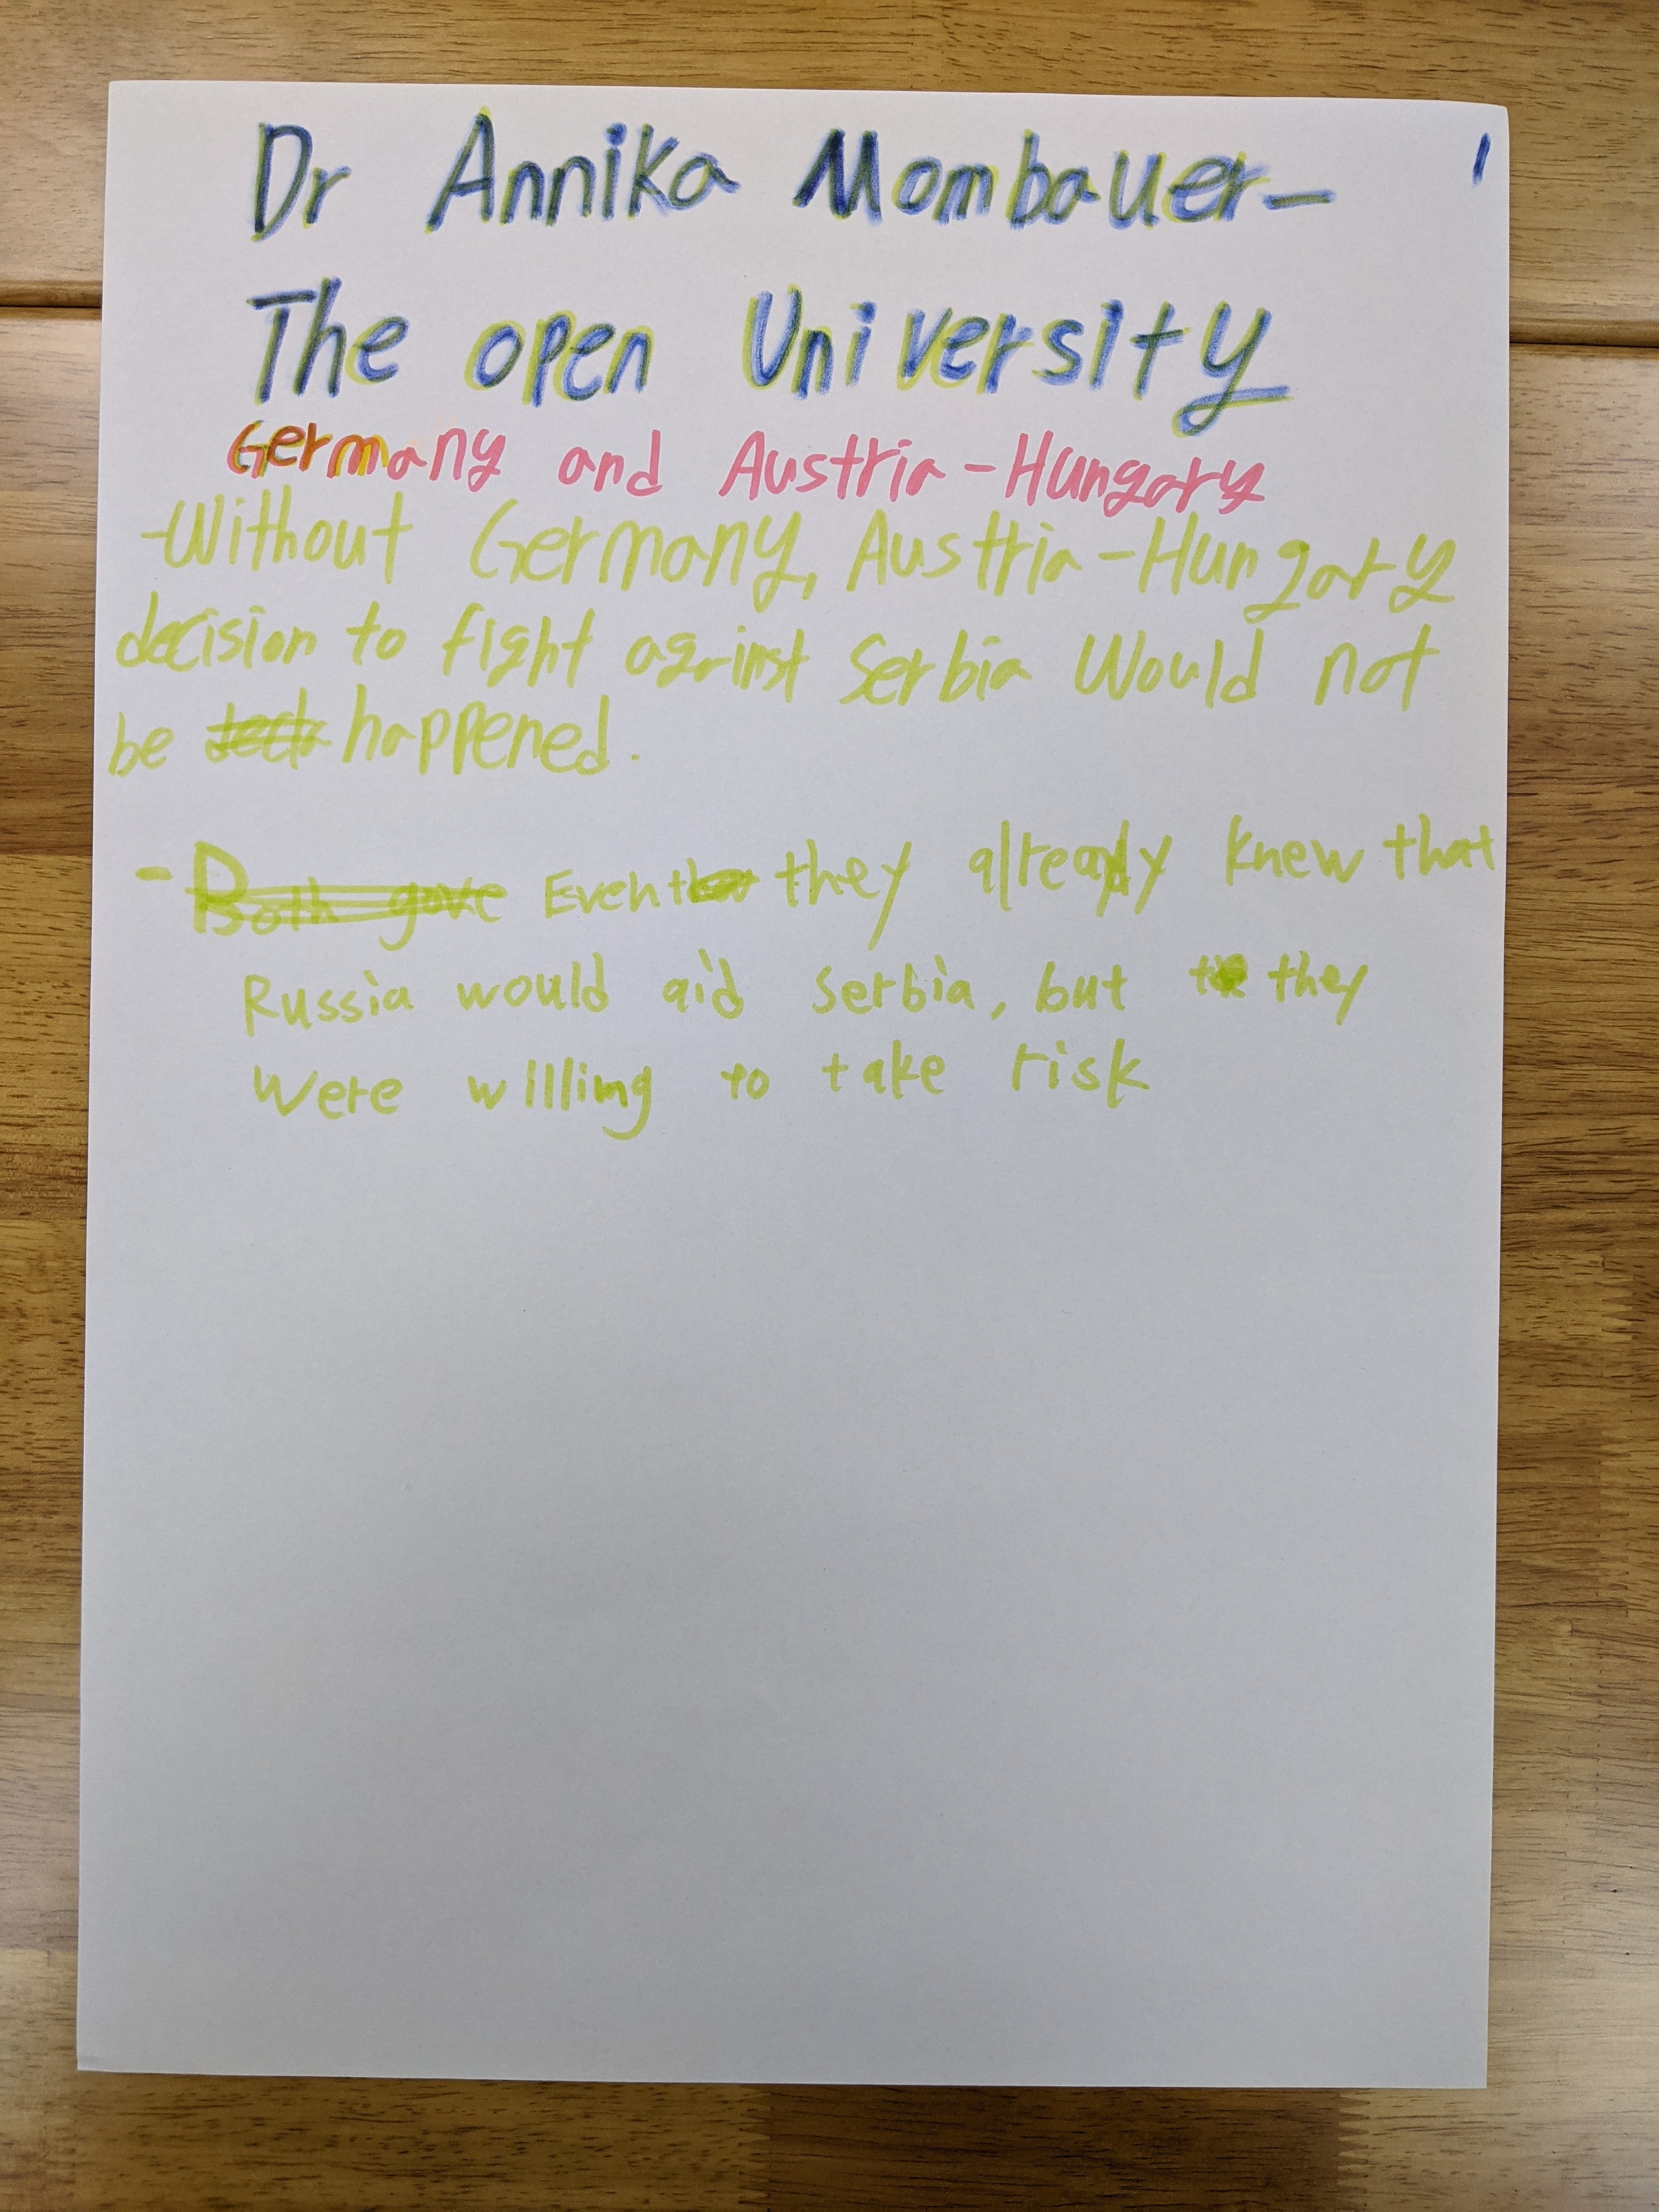 Dr Annika Mombauer-
1
The open University
Germany and Austria-Hungary
-Without Germany, Austria-Hungary
decision to fight against Serbia Would not
be happened.
- Both gave Even they already knew that
Russia would aid Serbia, but they
Were willing to take risk